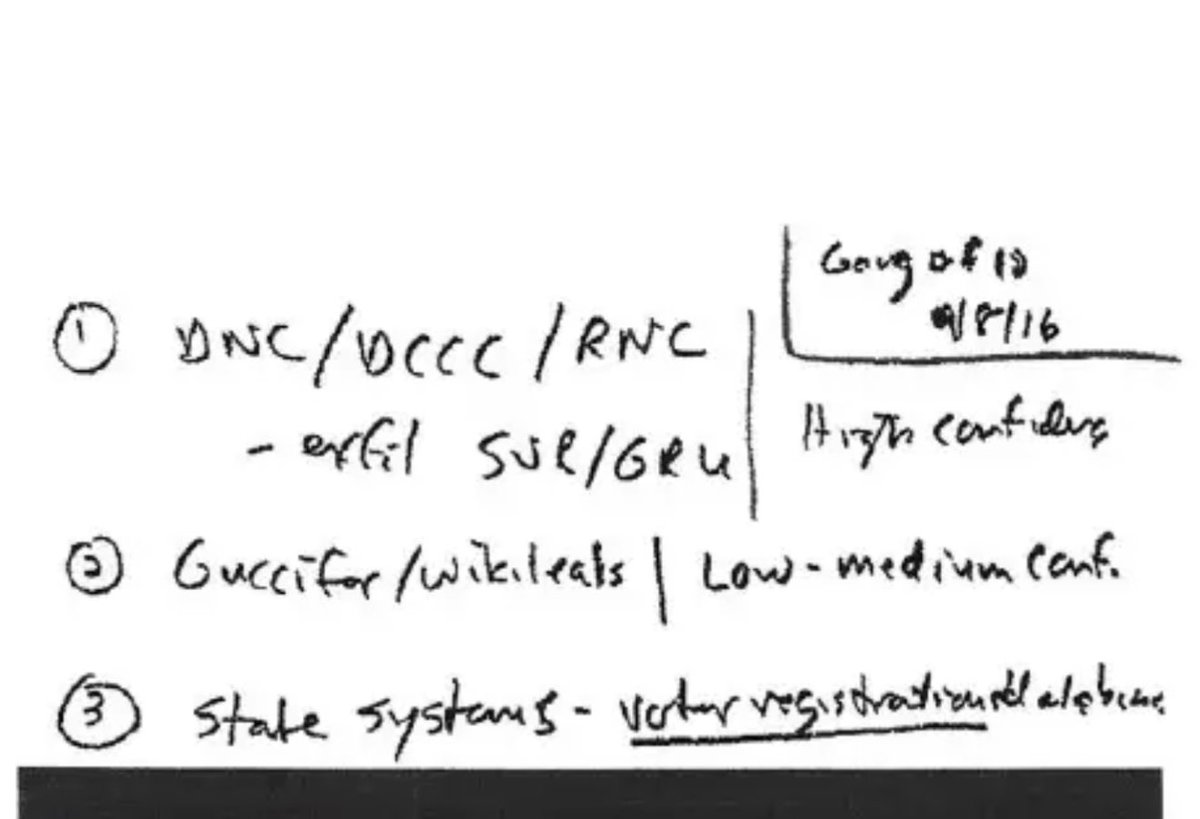 Gang of 10
9/8/16
① DNC/DCCC/RNC
- exfil SVR/GRU
High confidence
② Guccifer/wikileaks | Low-medium conf.
③ State systems - voter registration database